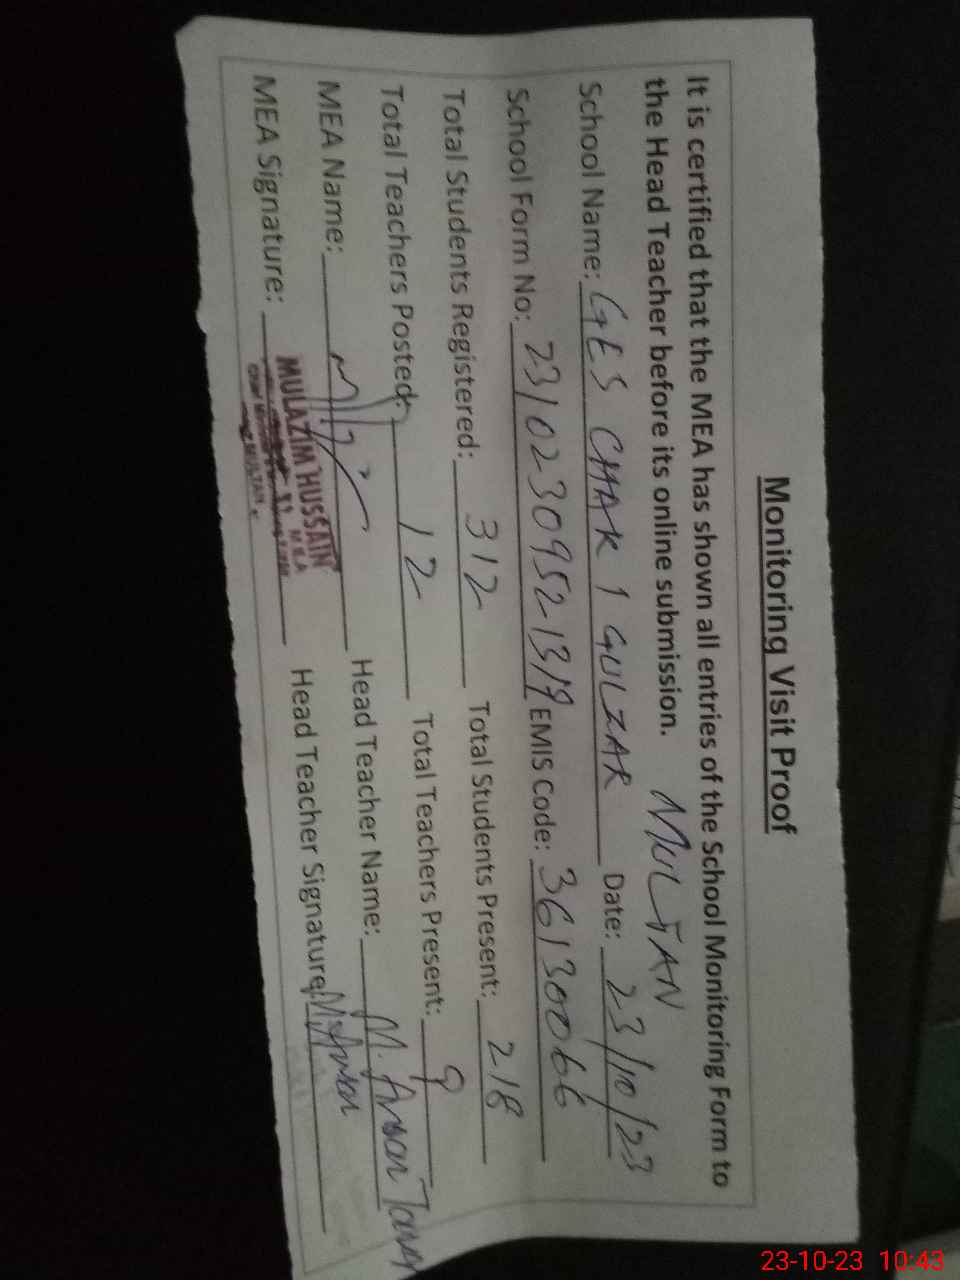 Monitoring Visit Proof
It is certified that the MEA has shown all entries of the School Monitoring Form to
the Head Teacher before its online submission. MULTAN
School Name: GES CHAK 1 GULZAR Date: 23/10/23
School Form No: 23102309521319 EMIS Code: 36130066
Total Students Registered: 312 Total Students Present: 218
Total Teachers Posted: 12 Total Teachers Present: 9
MEA Name: Head Teacher Name: M. Ansar
MEA Signature: Head Teacher Signature: M. Ansar
MULAZIM HUSSAIN
M.E.A
MULTAN.
23-10-23 10:43